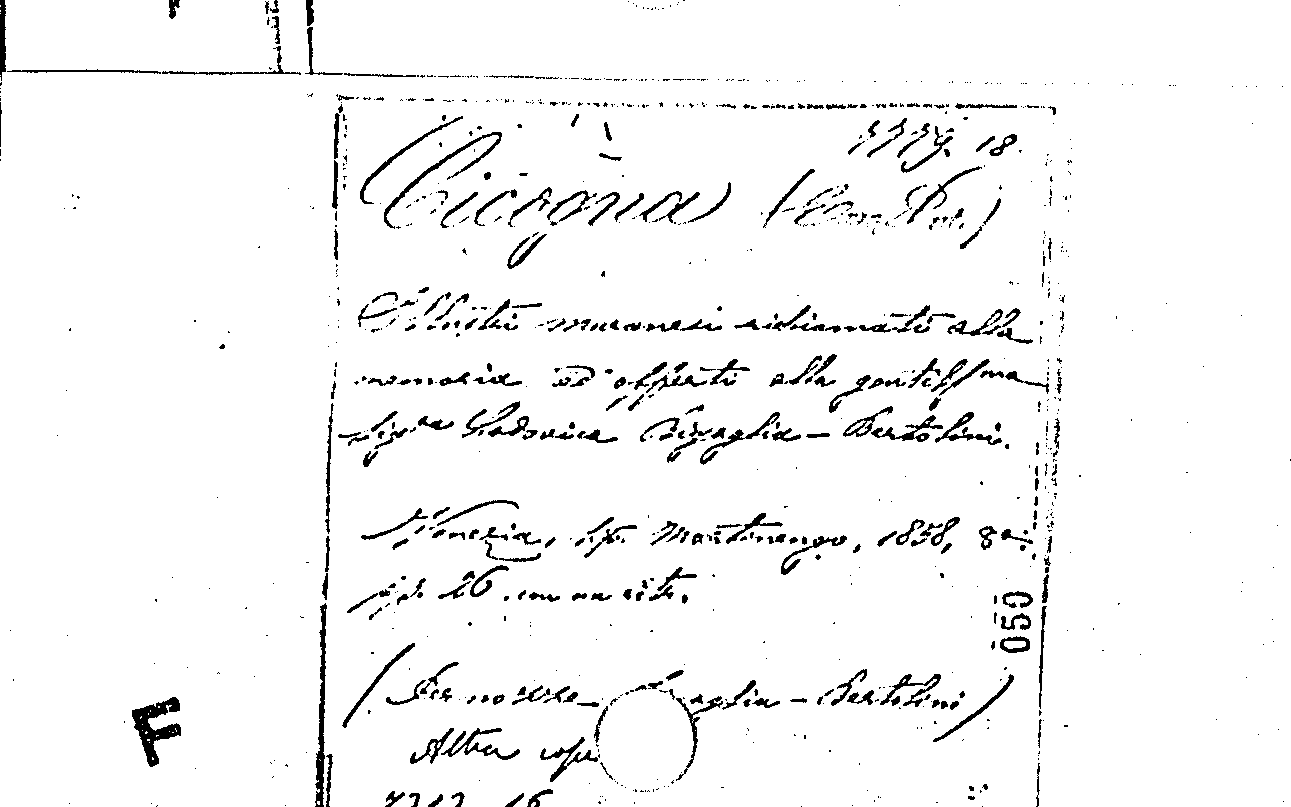 7779. 18.
Cicogna (Em. Ant.)
Illustri muranesi richiamati alla
memoria ed offerti alla gentilssma
sigra Lodovica Bigaglia - Bertolini.
Venezia, tip. Martinengo, 1858, 8°
pp. 26. con un rit.
050
(Per nozze aglia - Bertolini)
Altra cop
F